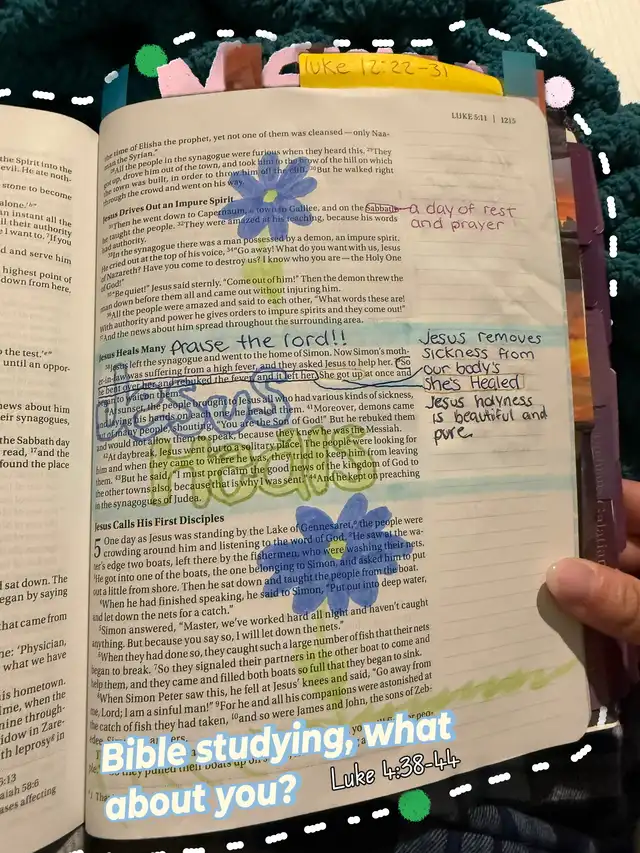 luke 12:22-31
LUKE 5:11 | 1215
the Spirit into the
evil. He ate noth-
stone to become
alone.'
instant all the
all their authority
I want to. If you
and serve him
highest point of
down from here.
to the test.'
until an oppor-
news about him
their synagogues,
the Sabbath day
read, 17 and the
found the place
sat down. The
began by saying
that came from
'Physician,
what we have
his hometown.
time, when the
through-
widow in Zare-
with leprosy in
5:13
Isaiah 58:6
the time of Elisha the prophet, yet not one of them was cleansed—only Naa-
man the Syrian."
28 All the people in the synagogue were furious when they heard this. 29 They
got up, drove him out of the town, and took him to the brow of the hill on which
the town was built, in order to throw him off the cliff. 30 But he walked right
through the crowd and went on his way.
Jesus Drives Out an Impure Spirit
31 Then he went down to Capernaum, a town in Galilee, and on the Sabbath
he taught the people. 32 They were amazed at his teaching, because his words
had authority.
a day of rest
and prayer
33 In the synagogue there was a man possessed by a demon, an impure spirit.
He cried out at the top of his voice, 34 "Go away! What do you want with us, Jesus
of Nazareth? Have you come to destroy us? I know who you are—the Holy One
of God!"
35 "Be quiet!" Jesus said sternly. "Come out of him!" Then the demon threw the
man down before them all and came out without injuring him.
36 All the people were amazed and said to each other, "What words these are!
With authority and power he gives orders to impure spirits and they come out!"
37 And the news about him spread throughout the surrounding area.
Jesus Heals Many
Praise the lord!!
38 Jesus left the synagogue and went to the home of Simon. Now Simon's moth-
er-in-law was suffering from a high fever, and they asked Jesus to help her. 39 So
he bent over her and rebuked the fever, and it left her. She got up at once and
began to wait on them.
40 At sunset, the people brought to Jesus all who had various kinds of sickness,
and laying his hands on each one, he healed them. 41 Moreover, demons came
out of many people, shouting, "You are the Son of God!" But he rebuked them
and would not allow them to speak, because they knew he was the Messiah.
42 At daybreak, Jesus went out to a solitary place. The people were looking for
him and when they came to where he was, they tried to keep him from leaving
them. 43 But he said, "I must proclaim the good news of the kingdom of God to
the other towns also, because that is why I was sent." 44 And he kept on preaching
in the synagogues of Judea.
Jesus
Heals
Jesus removes
sickness from
our body's
She's Healed
Jesus holyness
is beautiful and
pure.
Jesus Calls His First Disciples
5 One day as Jesus was standing by the Lake of Gennesaret, the people were
crowding around him and listening to the word of God. 2 He saw at the wa-
ter's edge two boats, left there by the fishermen, who were washing their nets.
3 He got into one of the boats, the one belonging to Simon, and asked him to put
out a little from shore. Then he sat down and taught the people from the boat.
4 When he had finished speaking, he said to Simon, "Put out into deep water,
and let down the nets for a catch."
5 Simon answered, "Master, we've worked hard all night and haven't caught
anything. But because you say so, I will let down the nets."
6 When they had done so, they caught such a large number of fish that their nets
began to break. 7 So they signaled their partners in the other boat to come and
help them, and they came and filled both boats so full that they began to sink.
8 When Simon Peter saw this, he fell at Jesus' knees and said, "Go away from
me, Lord; I am a sinful man!" 9 For he and all his companions were astonished at
the catch of fish they had taken, 10 and so were James and John, the sons of Zeb-
Bible studying, what
about you?
Luke 4:38-44